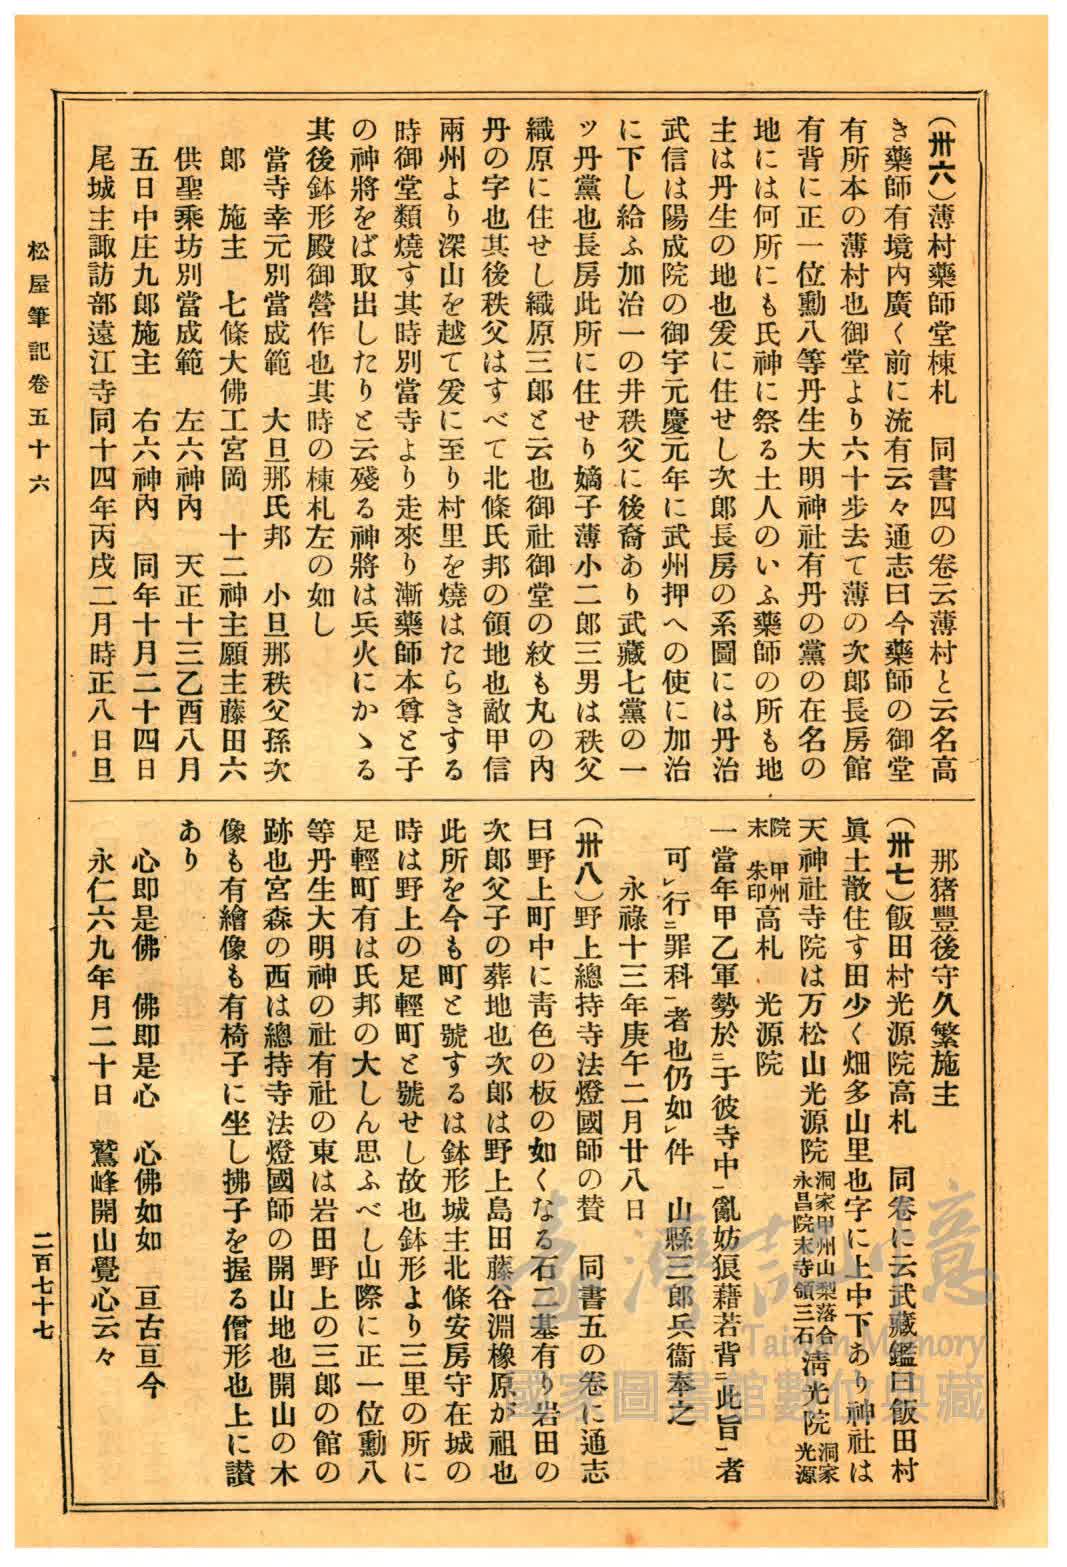 (卅六)薄村藥師堂棟札　同書四の卷云薄村と云名高
き藥師有境內廣く前に流有云々通志曰今藥師の御堂
有所本の薄村也御堂より六十步去て薄の次郎長房館
有背に正一位勳八等丹生大明神社有丹の黨の在名の
地には何所にも氏神に祭る土人のいふ藥師の所も地
主は丹生の地也爰に住せし次郎長房の系圖には丹治
武信は陽成院の御宇元慶元年に武州押への使に加治
に下し給ふ加治一の井秩父に後裔あり武藏七黨の一
ッ丹黨也長房此所に住せり嫡子薄小二郎三男は秩父
織原に住せし織原三郎と云也御社御堂の紋も丸の內
丹の字也其後秩父はすべて北條氏邦の領地也敵甲信
兩州より深山を越て爰に至り村里を燒はたらきする
時御堂類燒す其時別當寺より走來り漸藥師本尊と子
の神將をば取出したりと云殘る神將は兵火にかゝる
其後鉢形殿御營作也其時の棟札左の如し
當寺幸元別當成範　大旦那氏邦　小旦那秩父孫次
郎　施主　七條大佛工宮岡　十二神主願主藤田六
供聖乘坊別當成範　左六神內　天正十三乙酉八月
五日中庄九郎施主　右六神內　同年十月二十四日
尾城主諏訪部遠江寺同十四年丙戌二月時正八日旦
那猪豐後守久繁施主
(卅七)飯田村光源院高札　同卷に云武藏鑑曰飯田村
眞土散住す田少く畑多山里也字に上中下あり神社は
天神社寺院は万松山光源院洞家甲州山梨落合永昌院末寺領三石淸光院洞家光源
院末甲州朱印高札　光源院
一當年甲乙軍勢於ニ于彼寺中一亂妨狼藉若背ニ此旨一者
可レ行ニ罪科一者也仍如レ件　山縣三郎兵衞奉之
永祿十三年庚午二月廿八日
(卅八)野上總持寺法燈國師の贊　同書五の卷に通志
曰野上町中に靑色の板の如くなる石二基有り岩田の
次郎父子の葬地也次郎は野上島田藤谷淵橡原が祖也
此所を今も町と號するは鉢形城主北條安房守在城の
時は野上の足輕町と號せし故也鉢形より三里の所に
足輕町有は氏邦の大しん思ふべし山際に正一位勳八
等丹生大明神の社有社の東は岩田野上の三郎の館の
跡也宮森の西は總持寺法燈國師の開山地也開山の木
像も有繪像も有椅子に坐し拂子を握る僧形也上に讃
あり
心即是佛　佛即是心　心佛如如　亘古亘今
永仁六九年月二十日　鷲峰開山覺心云々
松屋筆記卷五十六
二百七十七
臺灣記憶
Taiwan Memory
國家圖書館數位典藏